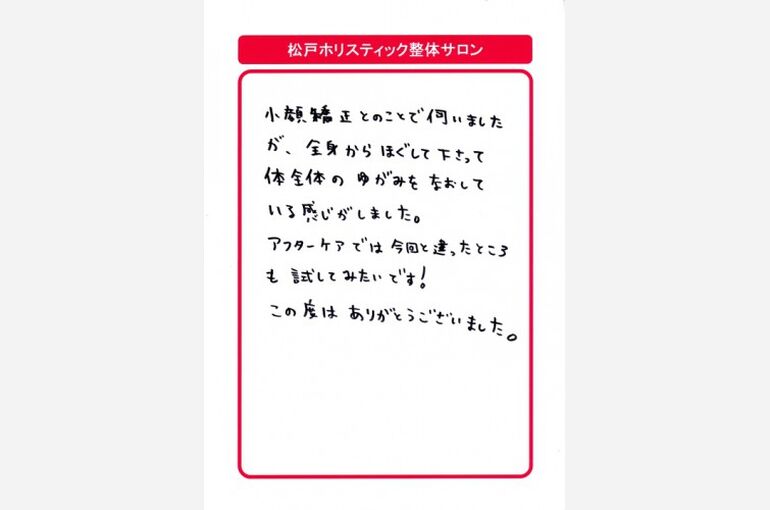 松戸ホリスティック整体サロン
小顔矯正とのことで伺いました
が、全身からほぐして下さって
体全体のゆがみをなおして
いる感じがしました。
アフターケアでは今回と違ったところ
も試してみたいです!
この度はありがとうございました。